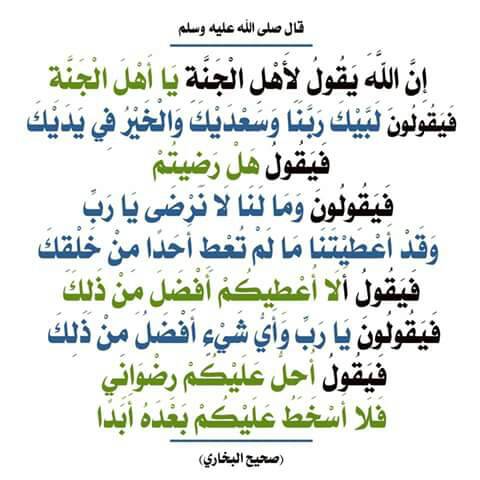 قال صلى الله عليه وسلم
إِنَّ اللَّهَ يَقُولُ لأَهْلِ الْجَنَّةِ يَا أَهْلَ الْجَنَّةِ
فَيَقُولُونَ لَبَّيْكَ رَبَّنَا وَسَعْدَيْكَ وَالْخَيْرُ فِي يَدَيْكَ
فَيَقُولُ هَلْ رَضِيتُمْ
فَيَقُولُونَ وَمَا لَنَا لا نَرْضَى يَا رَبِّ
وَقَدْ أَعْطَيْتَنَا مَا لَمْ تُعْطِ أَحَدًا مِنْ خَلْقِكَ
فَيَقُولُ أَلا أُعْطِيكُمْ أَفْضَلَ مِنْ ذَلِكَ
فَيَقُولُونَ يَا رَبِّ وَأَيُّ شَيْءٍ أَفْضَلُ مِنْ ذَلِكَ
فَيَقُولُ أُحِلُّ عَلَيْكُمْ رِضْوَانِي
فَلا أَسْخَطُ عَلَيْكُمْ بَعْدَهُ أَبَدًا
(صحيح البخاري)